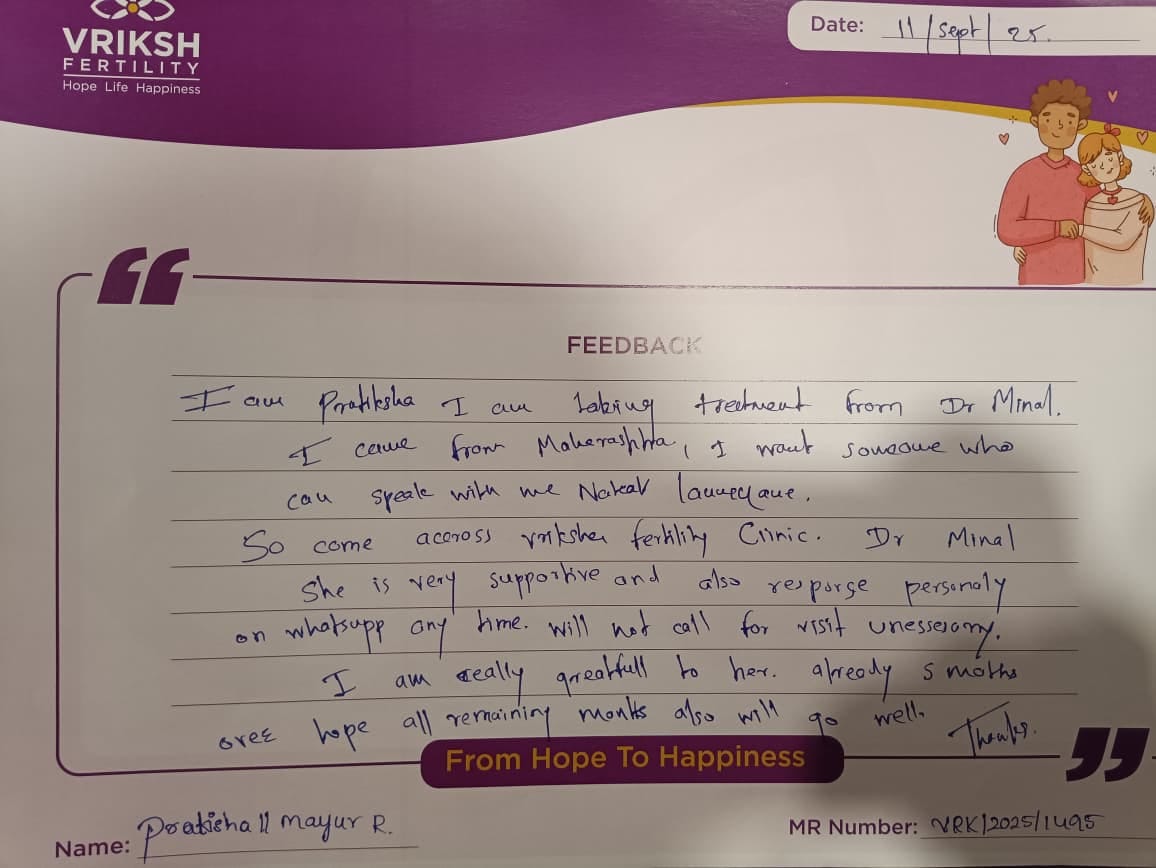 VRIKSH
FERTILITY
Hope Life Happiness
Date: 11/Sept/25.
FEEDBACK
I am Pratiksha I am taking treetment from Dr Minal.
I came from Maherashtra, I want someone who
can speak with me Nateav
So come accross vriksha fertility Clinic. Dr Minal
She is very supportive and also response personaly
on whatsupp any time. will not call for visit
I am really greatfull to her. already 5 moths
over hope all remaining months also will go well.
Thanks.
From Hope To Happiness
Name: Pratisha || mayur R.
MR Number: VRK/2025/1495